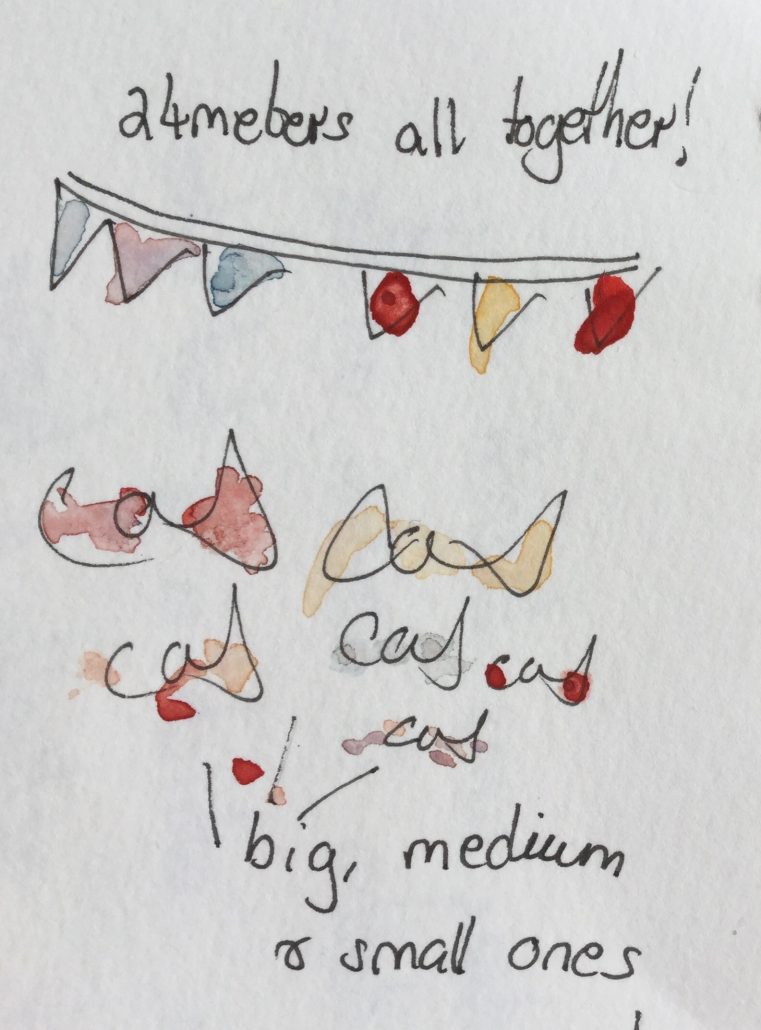 24meters all together!
cas cas
cas cas cas
cas
big, medium
& small ones